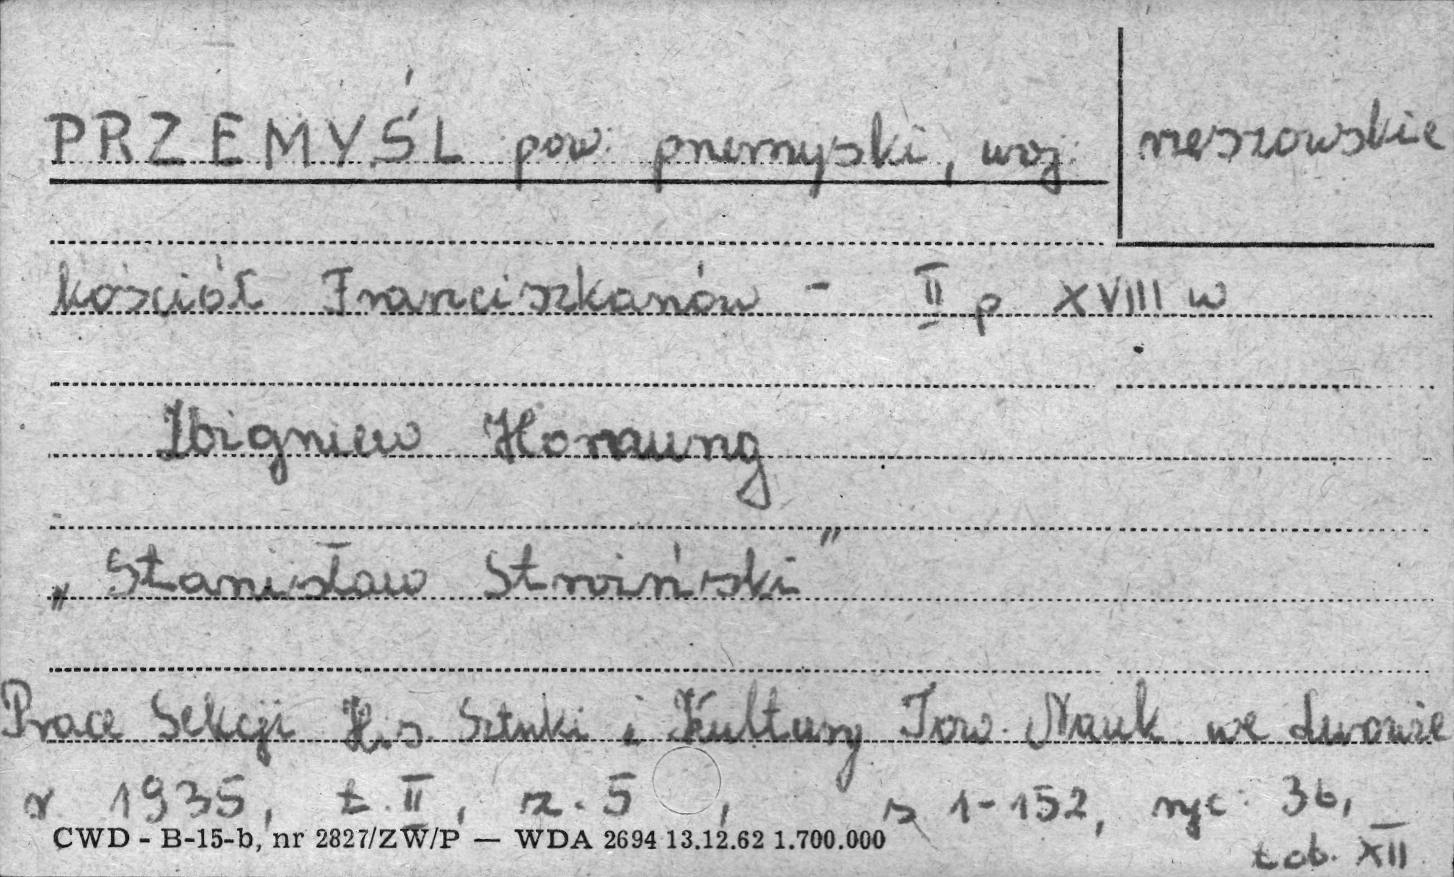 PRZEMYŚL pow. przemyski, woj. rzeszowskie
kościół Franciszkanów - II p XVIII w
Zbigniew Hornung
„Stanisław Stroiński"
Prace Sekcji His. Sztuki i Kultury Tow. Nauk we Lwowie
r 1935, t. II, z. 5, s 1-152, ryc. 36,
tab. XII
CWD - B-15-b, nr 2827/ZW/P — WDA 2694 13.12.62 1.700.000